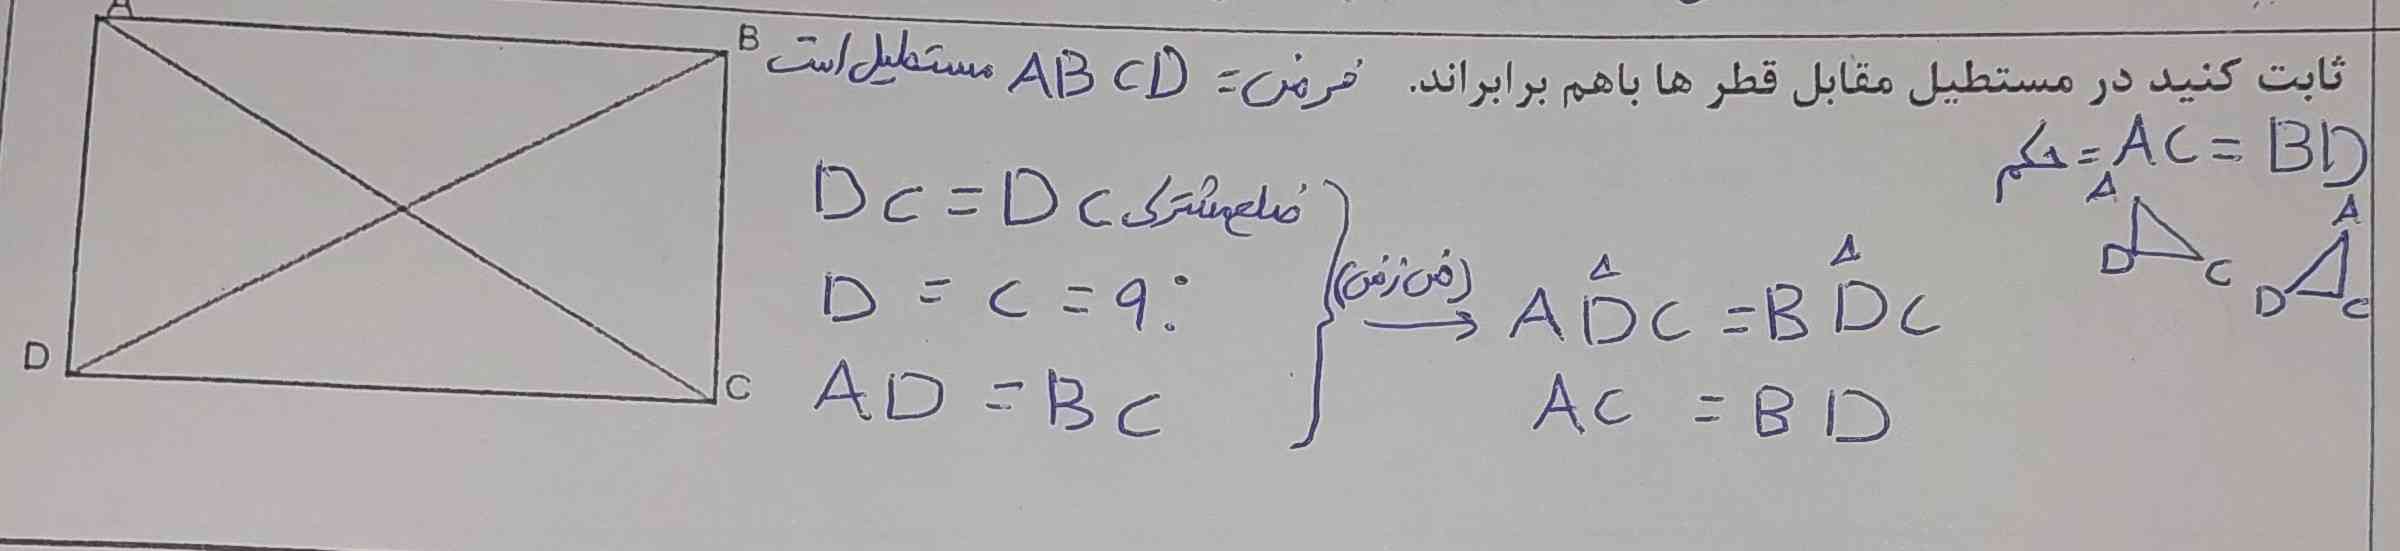 ثابت کنید در مستطیل مقابل قطر ها باهم برابراند. فرض = ABCD مستطیل است
حکم = AC = BD
A
B
D
C
DC = DC ضلع مشترک
D = C = 90
AD = BC
(ض ز ض) → ADC = BDC
AC = BD
A
D
C
A
D
C